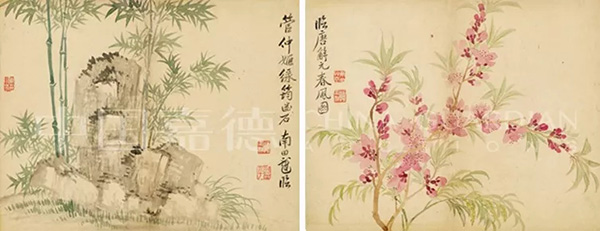 管仲姬綠筠幽石 南田臨
臨唐解元春風圖
中国嘉德
CHINA GUARDIAN